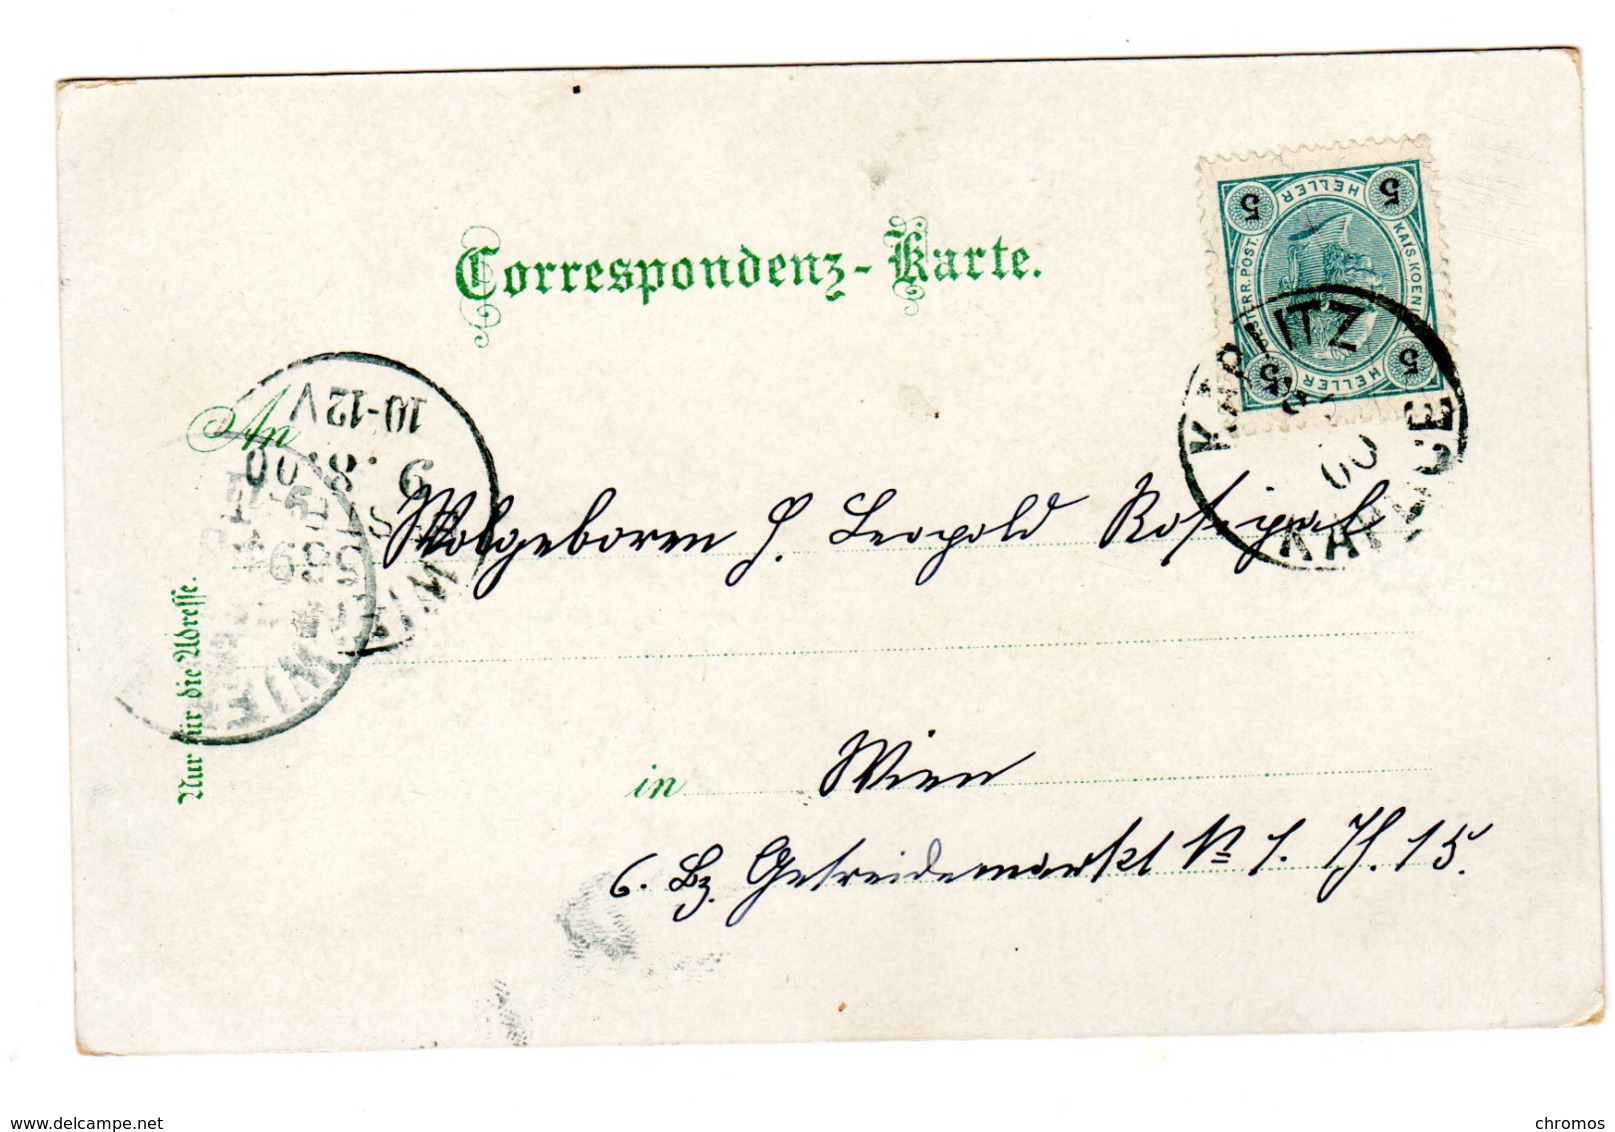 Correspondenz-Karte.
5 HELLER 5
KAIS.KOEN
ERR.POST.
5 HELLER 5
KAPLITZ
00
KAPLICE
An
10-12V
9.8.00
WIEN
WIEN
Wolgeboren H. Leopold Rosipal
in Wien
6. Bz. Getreidemarkt No 1. Th. 15.
Nur für die Adresse.
www.delcampe.net
chromos